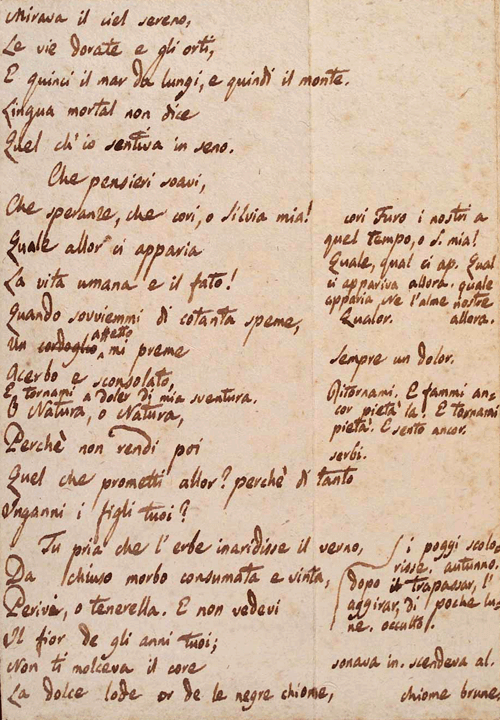 Mirava il ciel sereno,
Le vie dorate e gli orti,
E quinci il mar da lungi, e quindi il monte.
Lingua mortal non dice
Quel ch'io sentiva in seno.
Che pensieri soavi,
Che speranze, che cori, o Silvia mia!
Quale allor ci apparia
La vita umana e il fato!
Quando sovviemmi di cotanta speme,
Un cordoglio affetto mi preme
Acerbo e sconsolato,
E tornami a doler di mia sventura.
O Natura, o Natura,
Perchè non rendi poi
Quel che prometti allor? perchè di tanto
Inganni i figli tuoi?
Tu pria che l'erbe inaridisse il verno,
Da chiuso morbo consumata e vinta,
Perivi, o tenerella. E non vedevi
Il fior de gli anni tuoi;
Non ti molceva il core
La dolce lode or de le negre chiome,
cori Furo i nostri a
quel tempo, o S. mia!
Quale, qual ci ap. Qual
ci appariva allora. quale
apparia ne l'alme nostre
Qualor. allora.
sempre un dolor.
Ritornami. E fammi an=
cor pietà la. E tornami
pietà. E sento ancor.
serbi.
i poggi scolo=
risse. autunno.
dopo il trapassar, l'
aggirar, di poche lu=
ne. occulto.
sonava in. scendeva al.
chiome brune,